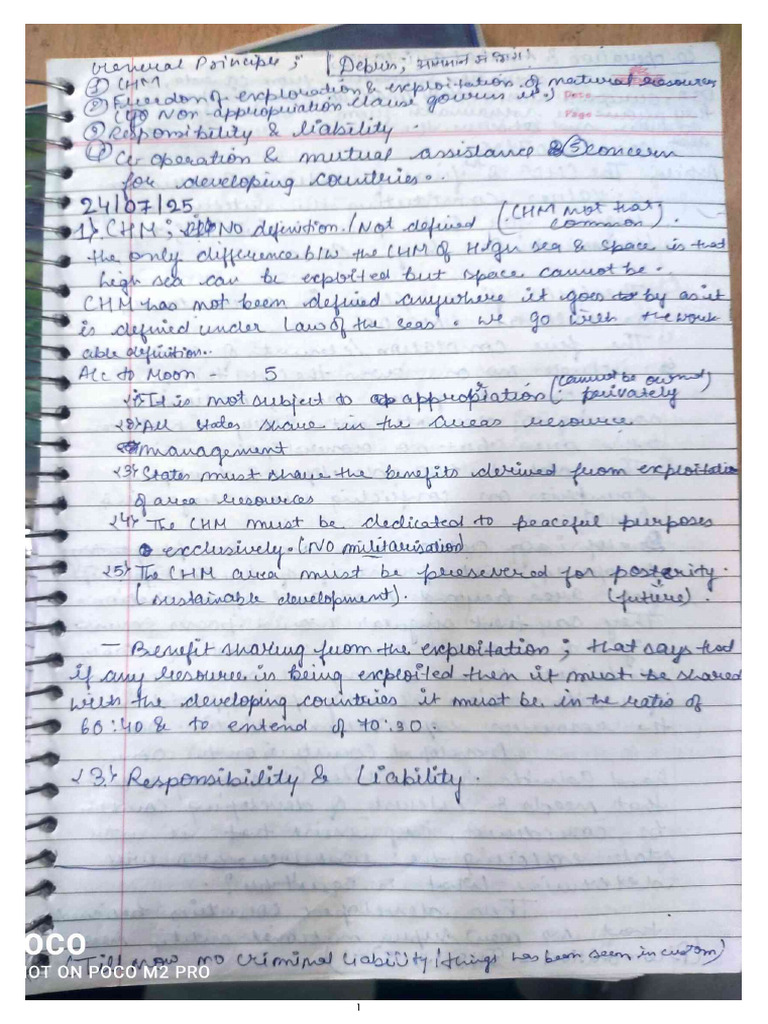 General Principle ;
| Debris ; आसमान से
① CHM
② Freedom of exploration & exploitation of natural resources
(40 Non-appropriation clause governs it.)
Date
Page
③ Responsibility & liability.
④ Co operation & mutual assistance & ⑤ concern
for developing countries.
24/07/25
1) CHM : No definition./Not defined (CHM not that common).
the only difference b/w the CHM of High sea & space is that
high sea can be exploited but space cannot be.
CHM has not been defined anywhere it goes by as it
is defined under Law of the seas. we go with the work
able definition..
Acc to Moon - 5
<1> It is not subject to appropriation (cannot be owned) privately
<2> All states share in the areas resource
management
<3> States must share the benefits derived from exploitation
of area resources
<4> The CHM must be dedicated to peaceful purposes
exclusively. (NO militarisation)
<5> The CHM area must be preserved for posterity.
(sustainable development). (future).
- Benefit sharing from the exploitation ; that says that
if any resource is being exploited then it must be shared
with the developing countries it must be in the ratio of
60:40 & to entend of 70:30.
<3> Responsibility & Liability.
(Till now no criminal liability (things has been seen in custom)
OCO
OT ON POCO M2 PRO
1